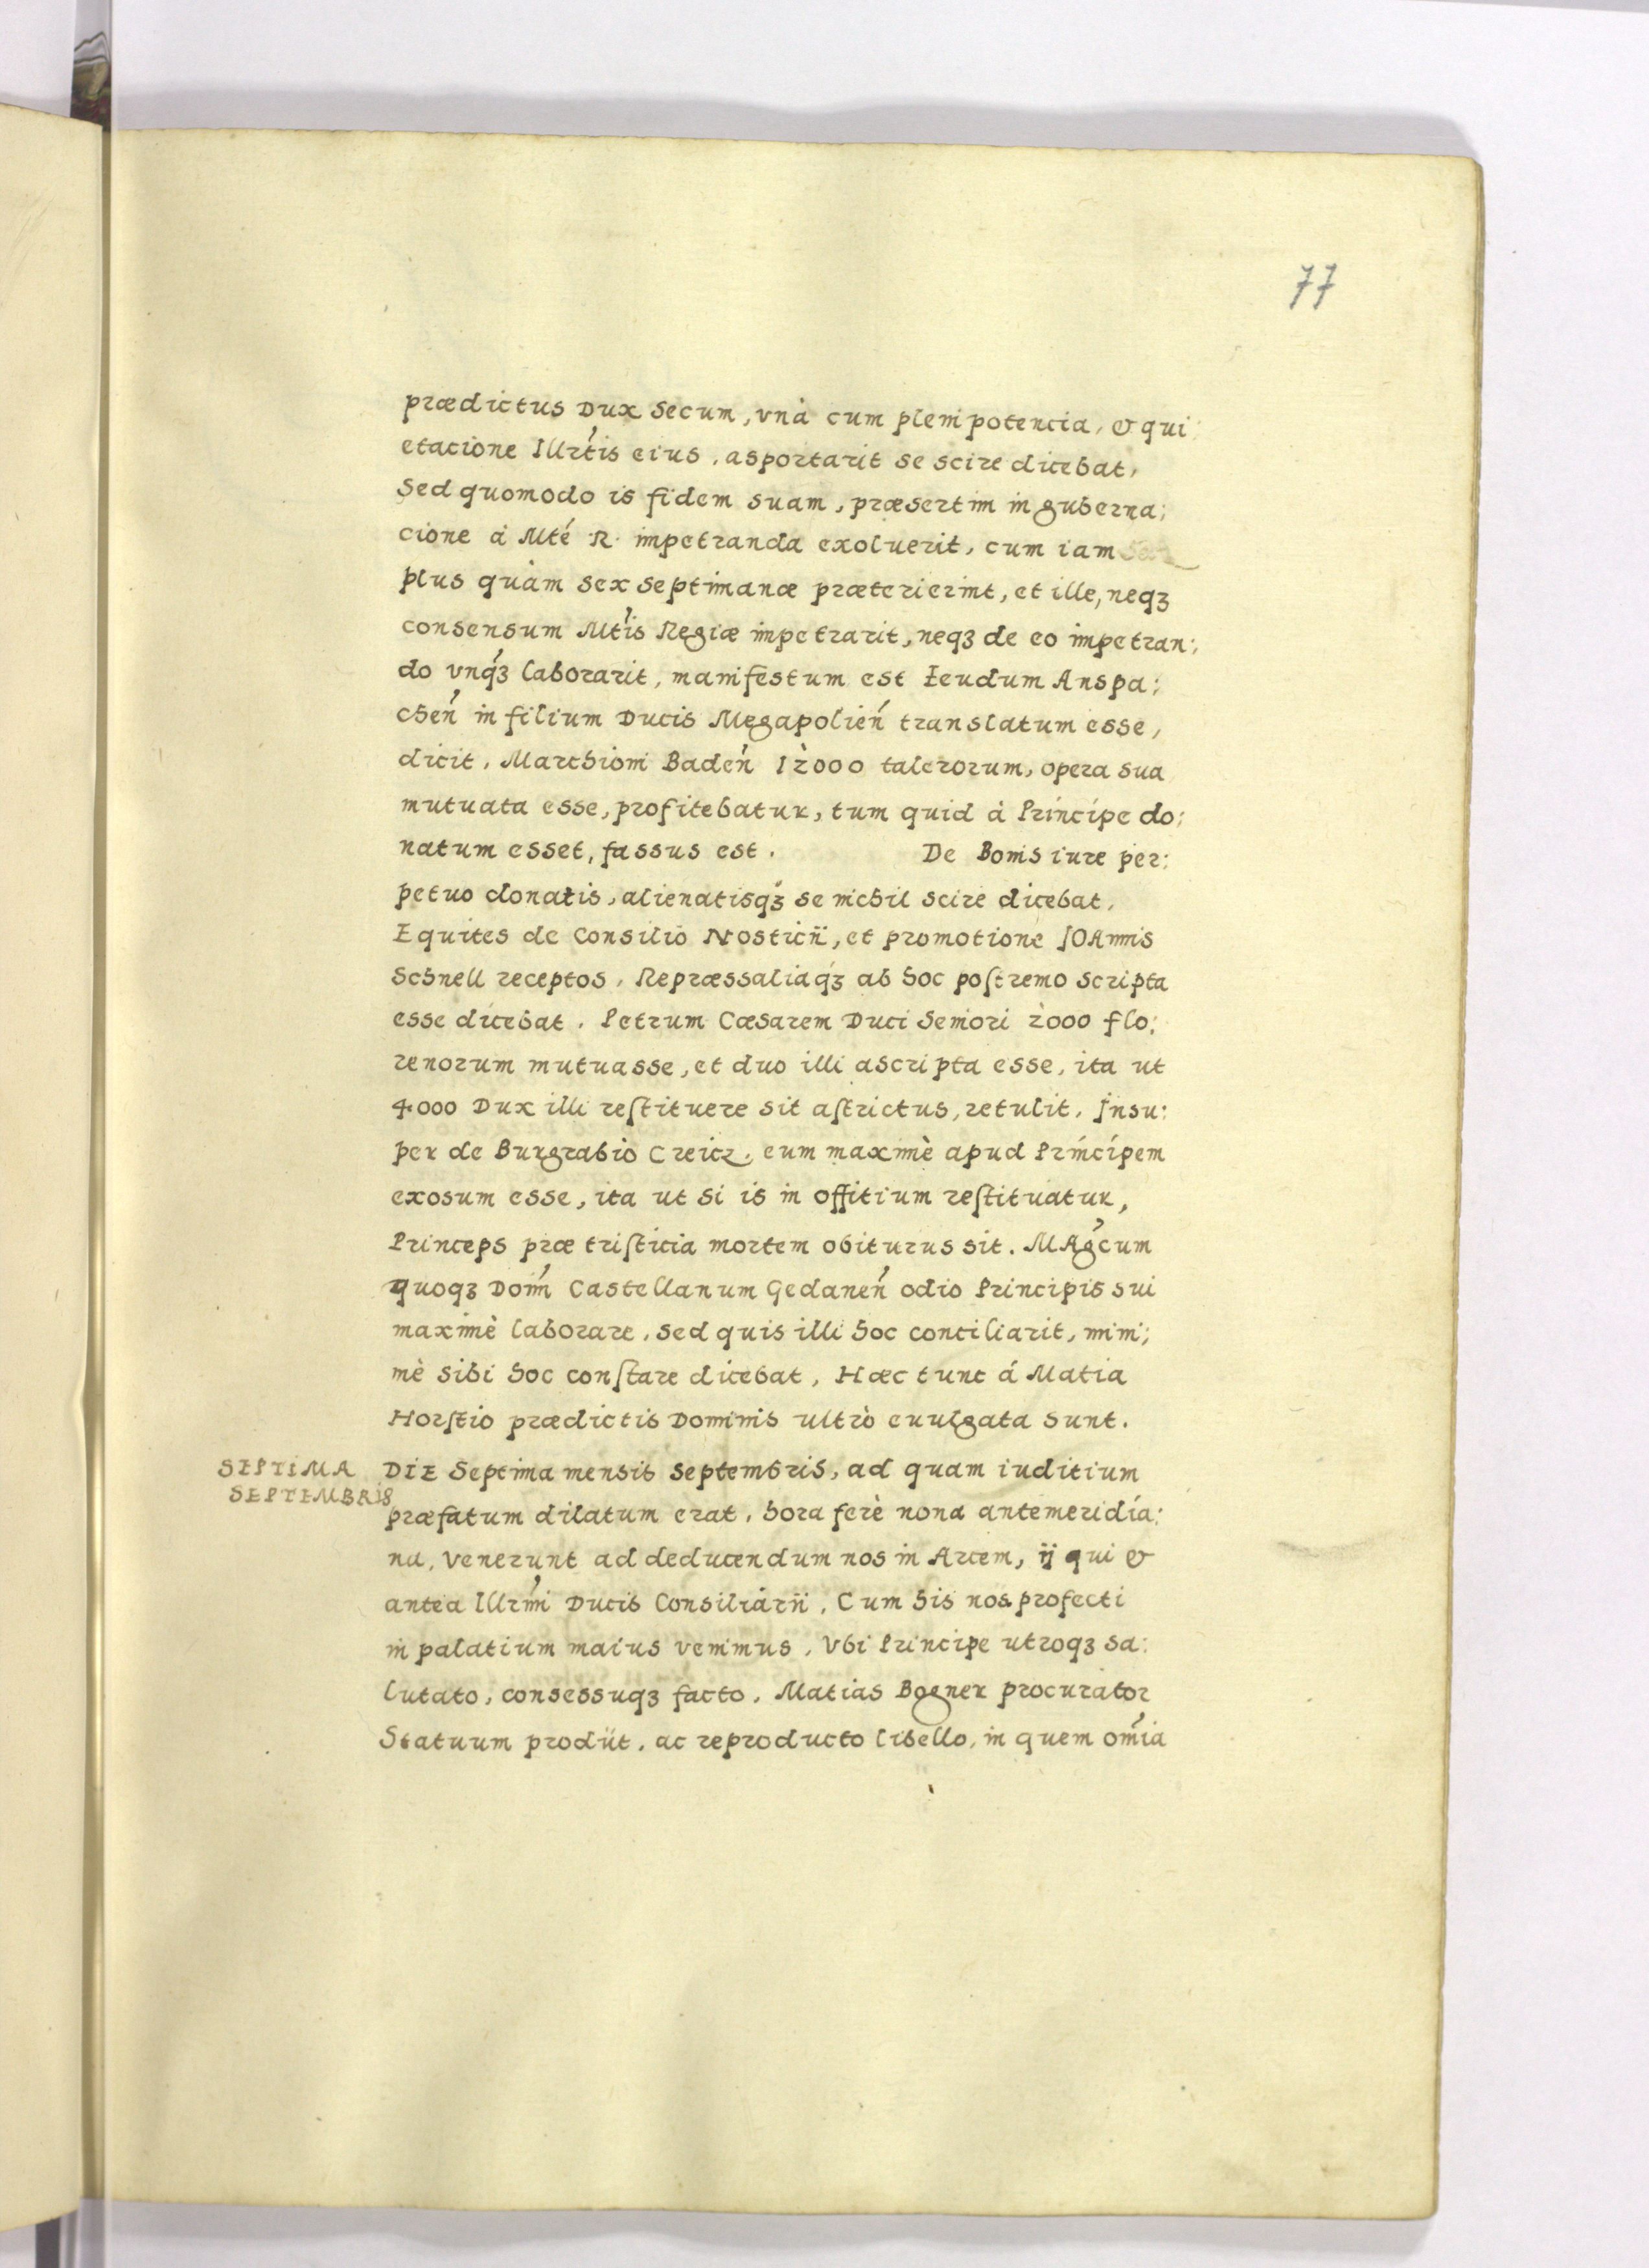 77
prædictus Dux secum, vnà cum plenipotencia, & qui
etacione Illrtis eius, asportarit se scire dicebat,
Sed quomodo is fidem suam, præsertim in guberna:
cione à Mté R. impetranda exoluerit, cum iam
plus quàm sex septimanæ præterierint, et ille, neqꝫ
consensum Mtis Regiæ impetrarit, neqꝫ de eo impetran:
do vnqꝫ laborarit, manifestum est feudum Anspa:
chen in filium Ducis Megapolien translatum esse,
dicit, Marchioni Baden 12000 talerorum, opera sua
mutuata esse, profitebatur, tum quid à Principe do:
natum esset, fassus est. De Bonis iure per:
petuo donatis, alienatisqꝫ se nichil scire dicebat,
Equites de Consilio Nosticii, et promotione JOAnnis
Schnell receptos, Repræssaliaqꝫ ab hoc poſtremo scripta
esse dicebat. Petrum Cæsarem Duci Seniori 2000 flo:
renorum mutuasse, et duo illi ascripta esse, ita ut
4000 Dux illi reſtituere sit aſtrictus, retulit, Insu:
per de Burgrabio Creicz, eum maximè apud Principem
exosum esse, ita ut si is in offitium reſtituatur,
Princeps præ triſticia mortem obiturus sit. MAgcum
quoqꝫ Dom Castellanum Gedanen odio Principis sui
maximè laborare, sed quis illi hoc conciliarit, mini:
mè sibi hoc conſtare dicebat, Hæc tunc á Matia
Horſtio prædictis Dominis ultrò euulgata sunt.
SEPTIMA
SEPTEMBRIS
DIE Septima mensis septembris, ad quam iuditium
præfatum dilatum erat, hora ferè nona antemeridia:
na, Venerunt ad deducendum nos in Arcem, ij qui &
antea Illrmi Ducis Consiliarii, Cum his nos profecti
in palatium maius venimus, Vbi Principe utroqꝫ sa:
lutato, consessuqꝫ facto, Matias Bogner procurator
Statuum prodiit, ac reproducto libello, in quem omia